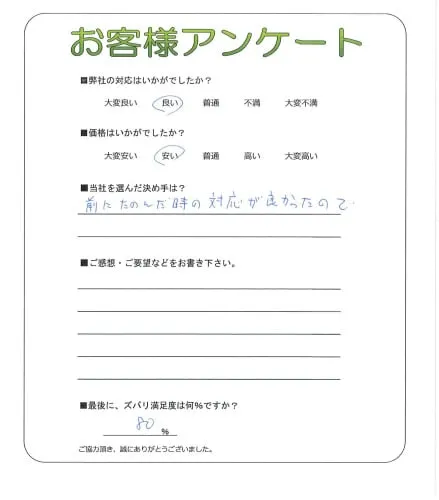 お客様アンケート
■弊社の対応はいかがでしたか？
大変良い 良い 普通 不満 大変不満
■価格はいかがでしたか？
大変安い 安い 普通 高い 大変高い
■当社を選んだ決め手は？
前にたのんだ時の対応が良かったので
■ご感想・ご要望などをお書き下さい。
■最後に、ズバリ満足度は何%ですか？
80 %
ご協力頂き、誠にありがとうございました。